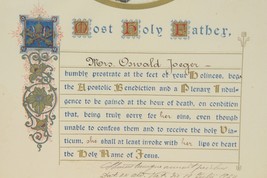 Most Holy Father,
Mrs Oswald Jaeger
humbly prostrate at the feet of your Holiness, begs
the Apostolic Benediction and a Plenary Indul-
gence to be gained at the hour of death, on condition
that, being truly sorry for her sins, even though
unable to confess them and to receive the holy Via-
ticum, she shall at least invoke with her lips or heart
the Holy Name of Jesus.